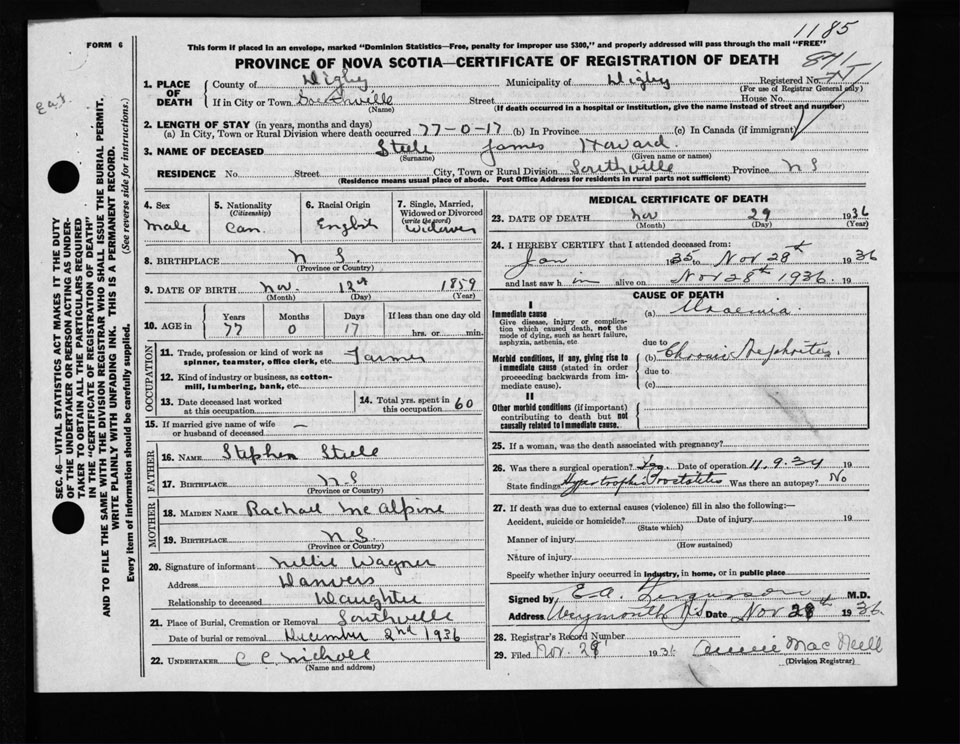 1185
FORM 6
This form if placed in an envelope, marked "Dominion Statistics—Free, penalty for improper use $300," and properly addressed will pass through the mail "FREE"
PROVINCE OF NOVA SCOTIA—CERTIFICATE OF REGISTRATION OF DEATH
1. PLACE OF DEATH County of Digby Municipality of Digby Registered No.
(For use of Registrar General only)
If in City or Town Southville Street House No.
(Name) (If death occurred in a hospital or institution, give the name instead of street and number)
2. LENGTH OF STAY (in years, months and days)
(a) In City, Town or Rural Division where death occurred 77-0-17 (b) In Province (c) In Canada (if immigrant)
3. NAME OF DECEASED Steele James Howard.
(Surname) (Given name or names)
RESIDENCE No. Street City, Town or Rural Division Southville Province N S
(Residence means usual place of abode. Post Office Address for residents in rural parts not sufficient)
SEC. 46—VITAL STATISTICS ACT MAKES IT THE DUTY
OF THE UNDERTAKER OR PERSON ACTING AS UNDER-
TAKER TO OBTAIN ALL THE PARTICULARS REQUIRED
IN THE "CERTIFICATE OF REGISTRATION OF DEATH"
AND TO FILE THE SAME WITH THE DIVISION REGISTRAR WHO SHALL ISSUE THE BURIAL PERMIT.
WRITE PLAINLY WITH UNFADING INK. THIS IS A PERMANENT RECORD.
Every item of information should be carefully supplied. (See reverse side for instructions.)
4. Sex Male
5. Nationality (Citizenship) Can.
6. Racial Origin English
7. Single, Married, Widowed or Divorced (write the word) Widower
8. BIRTHPLACE N S.
(Province or Country)
9. DATE OF BIRTH Nov. 12th 1859
(Month) (Day) (Year)
10. AGE in Years 77 Months 0 Days 17 If less than one day old hrs. or min.
OCCUPATION
11. Trade, profession or kind of work as spinner, teamster, office clerk, etc. Farmer
12. Kind of industry or business, as cotton-mill, lumbering, bank, etc.
13. Date deceased last worked at this occupation
14. Total yrs. spent in this occupation 60
15. If married give name of wife or husband of deceased —
FATHER
16. NAME Stephen Steele
17. BIRTHPLACE N S
(Province or Country)
MOTHER
18. MAIDEN NAME Rachael McAlpine
19. BIRTHPLACE N S.
(Province or Country)
20. Signature of informant Nellie Wagner
Address Danvers
Relationship to deceased Daughter
21. Place of Burial, Cremation or Removal Southville
Date of burial or removal December 2nd 1936
22. UNDERTAKER C C Nicholl
(Name and address)
MEDICAL CERTIFICATE OF DEATH
23. DATE OF DEATH Nov 29 1936
(Month) (Day) (Year)
24. I HEREBY CERTIFY that I attended deceased from:
Jan 1935 to Nov 28th 1936
and last saw him alive on Nov 28th 1936. 19
CAUSE OF DEATH
I
Immediate cause
Give disease, injury or complication which caused death, not the mode of dying, such as heart failure, asphyxia, asthenia, etc
(a) Uraemia.
due to
Morbid conditions, if any, giving rise to immediate cause (stated in order proceeding backwards from immediate cause).
(b) Chronic Nephrites.
due to
(c)
II
Other morbid conditions (if important) contributing to death but not causally related to immediate cause.
25. If a woman, was the death associated with pregnancy?
26. Was there a surgical operation? Yes Date of operation 11.9.34 19
State findings Hypertrophic Prostatites Was there an autopsy? No
27. If death was due to external causes (violence) fill in also the following:—
Accident, suicide or homicide? Date of injury 19
(State which)
Manner of injury
(How sustained)
Nature of injury
Specify whether injury occurred in industry, in home, or in public place
Signed by E.A. Fergusson M.D.
Address Weymouth N.S Date Nov 28th 1936
28. Registrar's Record Number
29. Filed Nov. 29 1936 Annie MacNeill
(Division Registrar)